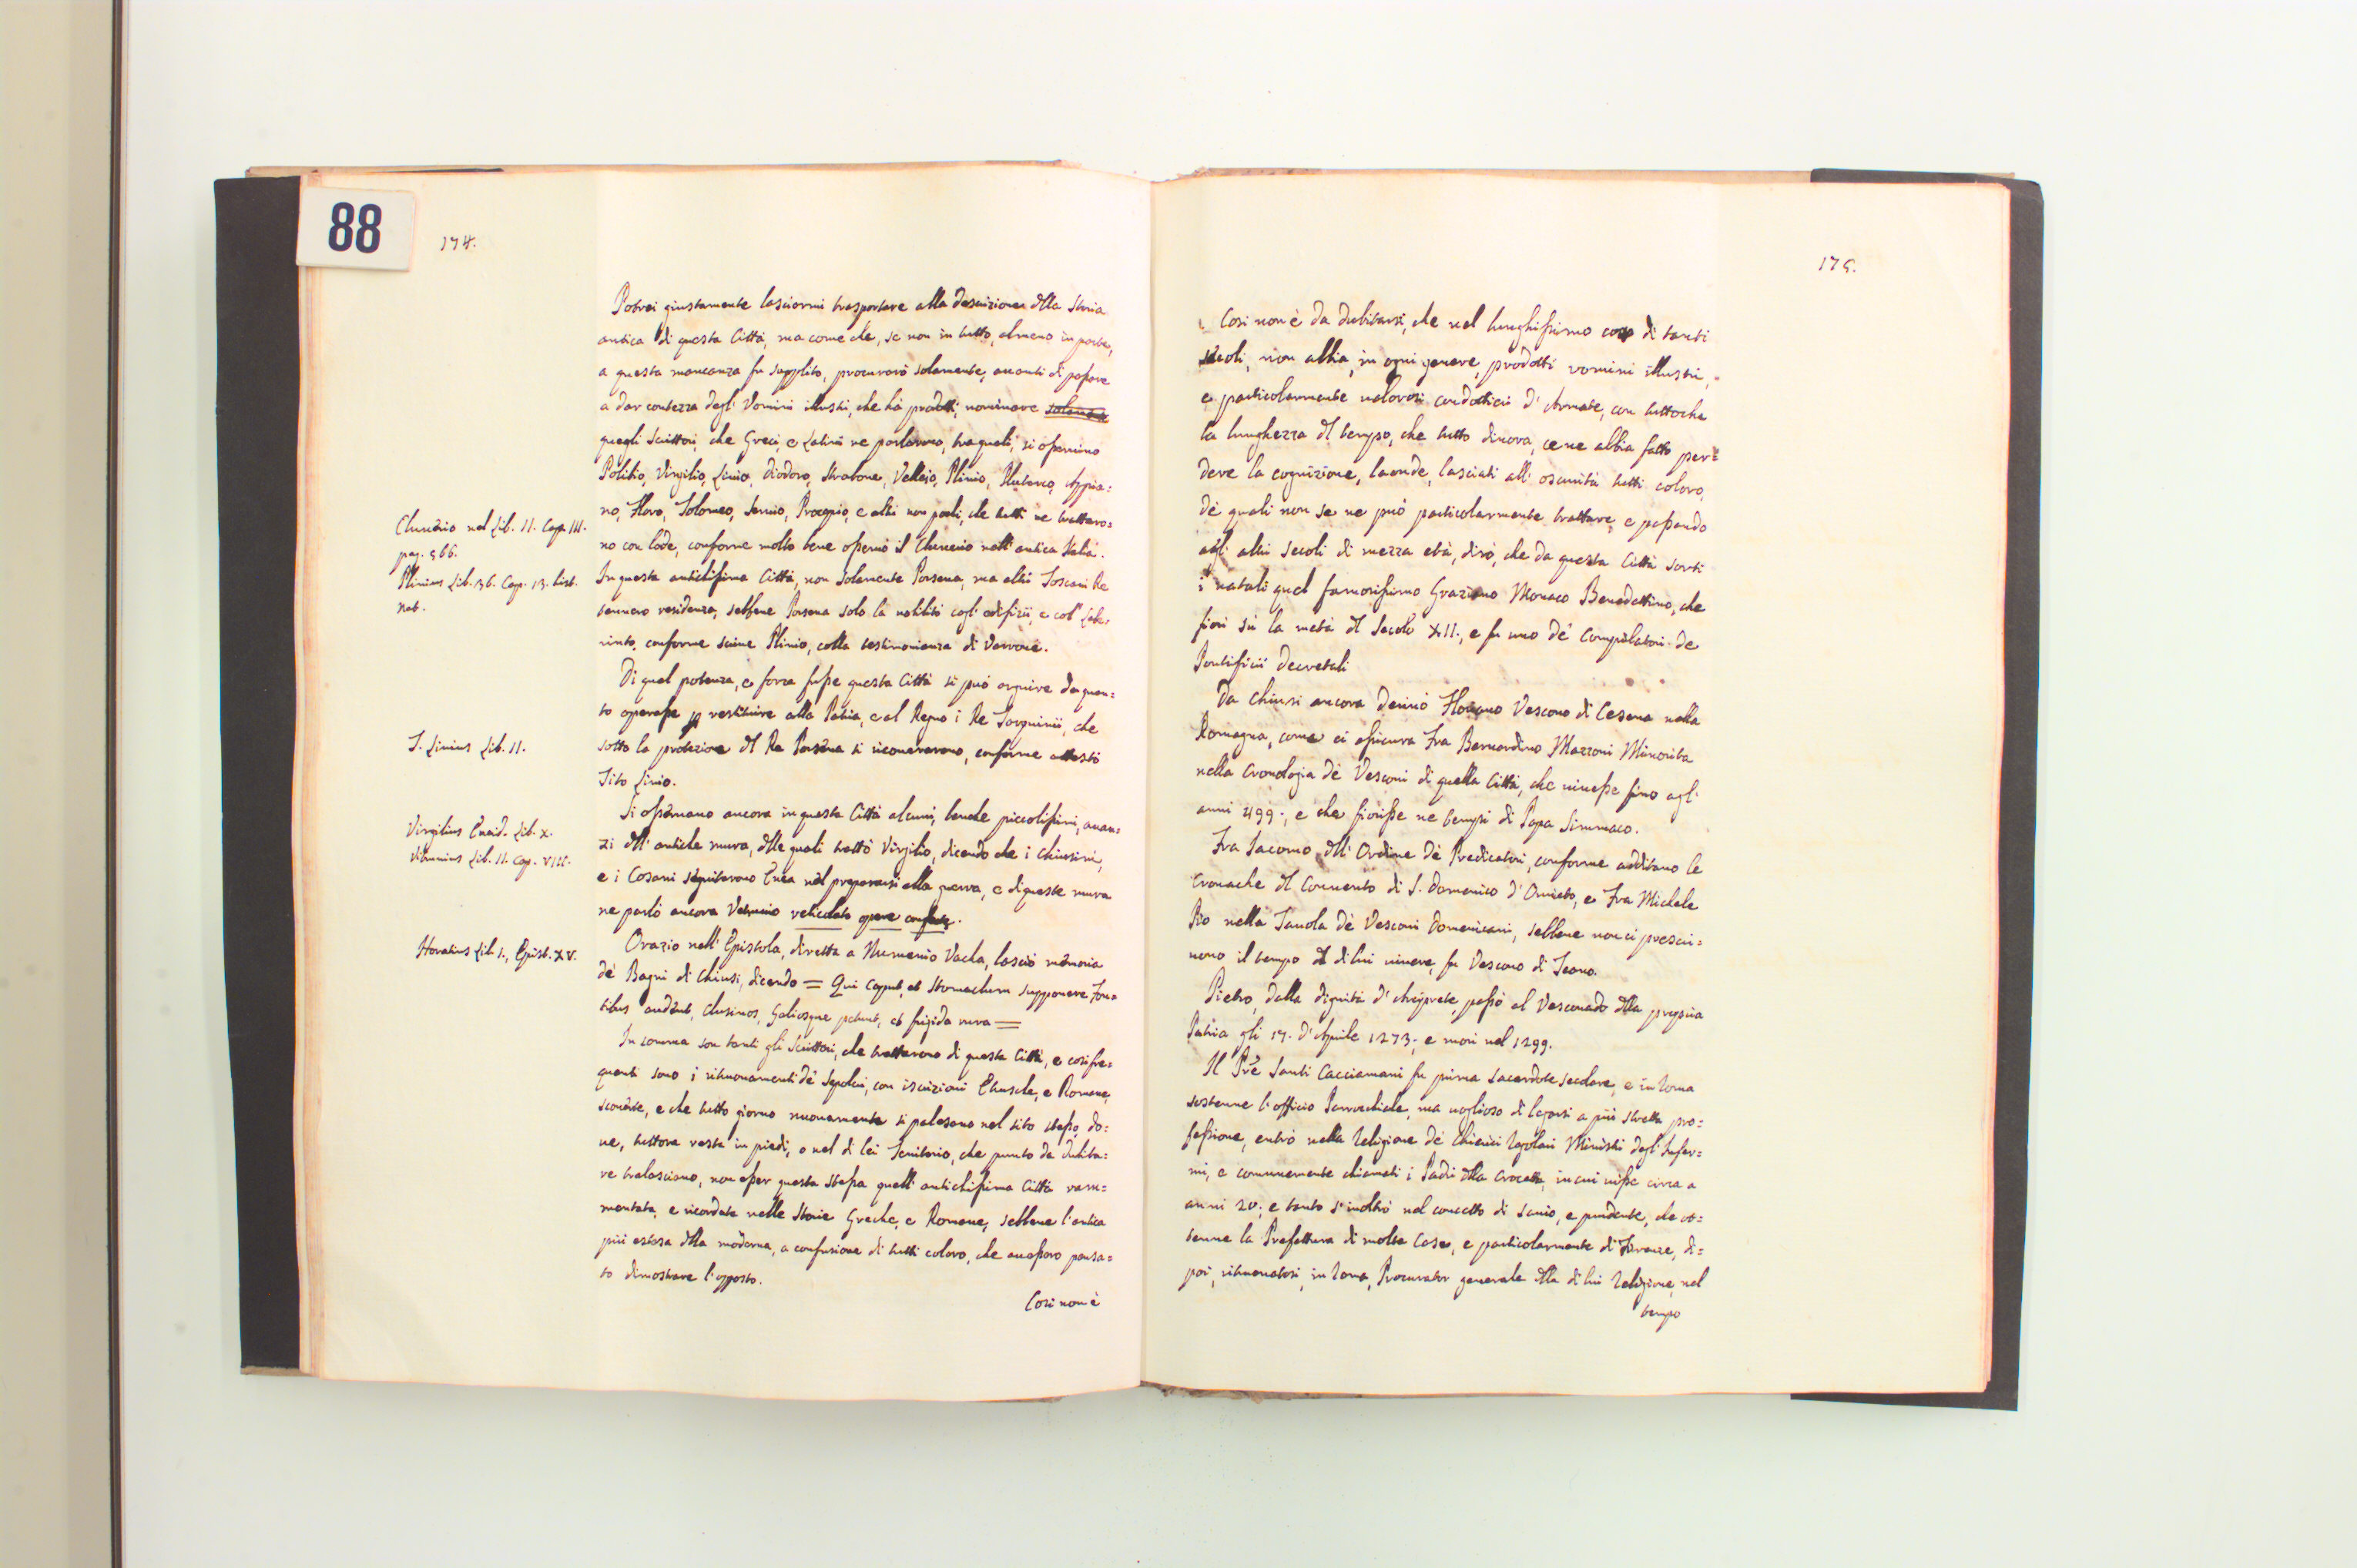 88
174.
Potrei giustamente lasciarmi trasportare alla descrizione della Storia
antica di questa Città, ma come che, se non in tutto, almeno in parte,
a questa mancanza fu supplito, procurarò solamente, avanti di passare
a dar contezza degl' Uomini illustri, che hà prodotti, nominare
quegli Scrittori, che Greci, e Latini ne parlarono, tra quali, si osservino
Polibio, Virgilio, Livio, Diodoro, Strabone, Vellejo, Plinio, Plutarco, Appia=
no, Floro, Tolomeo, Servio, Procopio, e altri non pochi, che tutti ne trattaro=
no con lode, conforme molto bene osservò il Cluverio nell' antica Italia.
In questa antichissima Città, non solamente Porsena, ma altri Toscani Re
tennero residenza, sebbene Porsena solo la nobilitò cogl' edifizii, e col Labe=
rinto, conforme scrive Plinio, colla testimonianza di Varrone.
Di qual potenza, e forza fusse questa Città si può arguire da quan=
to operasse p restituire alla Patria, e al Regno i Re Tarquinii, che
sotto la protezione del Re Porsena si ricoverarono, conforme attestò
Tito Livio.
Si osservano ancora in questa Città alcuni, benche piccolissimi, avan=
zi dell' antiche mura, delle quali trattò Virgilio, dicendo che i Chiusini,
e i Cosani seguitarono Enea nel prepararsi alla guerra, e di queste mura
ne parlò ancora Vitruvio reticolato opere
Orazio nell' Epistola, diretta a Numenio Vacla, lasciò memoria
de' Bagni di Chiusi, dicendo = Qui Caput, et Stomachum supponere Fon=
tibus audent, Clusinos, Gabiosque petunt, et frigida rura =
In somma son tanti gli Scrittori, che trattarono di questa Città, e così fre=
quenti sono i ritrovamenti de' Sepolcri, con iscrizioni Etrusche, e Romane,
scoverte, e che tutto giorno nuovamente si palesano nel sito stesso, do=
ve, tuttora resta in piedi, o nel di lei Territorio, che punto da dubita=
re tralasciano, non esser questa stessa quell' antichissima Città ram=
mentata, e ricordata nelle Storie Greche, e Romane, sebbene l'antica
più estesa della moderna, a confusione di tutti coloro, che avessero pensa=
to dimostrare l'opposto.
Così non è
Cluverio nel Lib. II. Cap. III.
pag. 566.
Plinius Lib. 36. Cap. 13. hist.
nat.
T. Livius Lib. II.
Virgilius Eneid. Lib. X.
Vitruvius Lib. II. Cap. VIII.
Horatius Lib. I., Epist. XV.
175.
Così non è da dubitarsi, che nel lunghissimo corso di tanti
secoli, non abbia, in ogni genere, prodotti uomini illustri,
e particolarmente valorosi condottieri d' Armate, con tuttoche
la lunghezza del tempo, che tutto divora, ce ne abbia fatto per=
dere la cognizione, laonde, lasciati all' oscurità tutti coloro,
de' quali non se ne può particolarmente trattare, e passando
agl' altri secoli di mezza età, dirò, che da questa Città sortì
i natali quel famosissimo Graziano Monaco Benedettino, che
fiorì sù la metà del Secolo XII., e fu uno de' Compilatori de
Pontificii decretali
Da Chiusi ancora derivò Floriano Vescovo di Cesena nella
Romagna, come ci assicura Fra Bernardino Mazzoni Minorita
nella Cronologia de' Vescovi di quella Città, che vivesse fino agl'
anni 499., e che fiorisse ne tempi di Papa Simmaco.
Fra Iacomo, dell' Ordine de' Predicatori, conforme additano le
Cronache del Convento di S. Domenico d' Orvieto, e Fra Michele
Pio nella Tavola de' Vescovi Domenicani, sebbene non ci prescri=
vono il tempo del di lui vivere, fu Vescovo di Teano.
Pietro, dalla dignità d' Arciprete, passò al Vescovado della propria
Patria gli 17. d' Aprile 1273., e morì nel 1299.
Il Pre Santi Cacciamani fu prima sacerdote secolare, e in Roma
sostenne l' officio Parrochiale, ma voglioso di legarsi a più stretta pro=
fessione, entrò nella Religione de' Chierici Regolari Ministri degl' Infer=
mi, e comunemente chiamati i Padri della Crocetta, in cui visse circa a
anni 20., e tanto s' inoltrò nel concetto di savio, e prudente, che ot=
tenne la Prefettura di molte Case, e particolarmente di Firenze, di=
poi, ritrovatosi, in Roma, Procurator generale della di lui Religione, nel
tempo